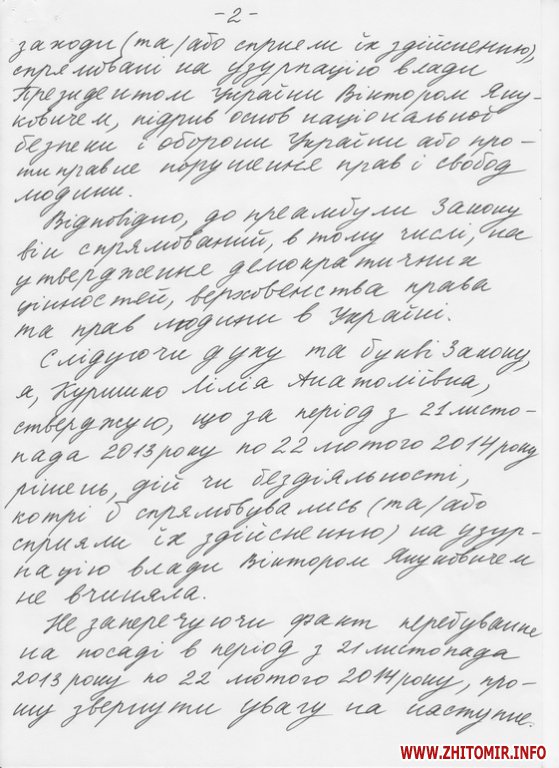 -2-
заходи (та/або сприяли їх здійсненню),
спрямовані на узурпацію влади
Президентом України Віктором Яну-
ковичем, підрив основ національної
безпеки і оборони України або про-
типравне порушення прав і свобод
людини.
Відповідно, до преамбули Закону
він спрямований, в тому числі, на
утвердження демократичних
цінностей, верховенства права
та прав людини в Україні.
Слідуючи духу та букві Закону,
я, Куришко Лілія Анатоліївна,
стверджую, що за період з 21 листо-
пада 2013 року по 22 лютого 2014 року
рішень, дій чи бездіяльності,
котрі б спрямовувались (та/або
сприяли їх здійсненню) на узур-
пацію влади Віктором Януковичем
не вчиняла.
Не заперечуючи факт перебування
на посаді в період з 21 листопада
2013 року по 22 лютого 2014 року, про-
шу звернути увагу на наступне.
WWW.ZHITOMIR.INFO